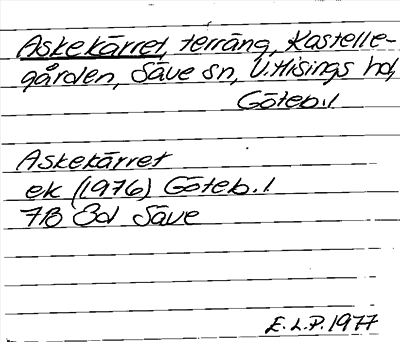 Askekärret, terräng, Kastelle-
gården, Säve sn, V. Hisings hd,
Göteb. l
Askekärret
ek (1976) Göteb. l
7B 3d Säve
E.L.P. 1977